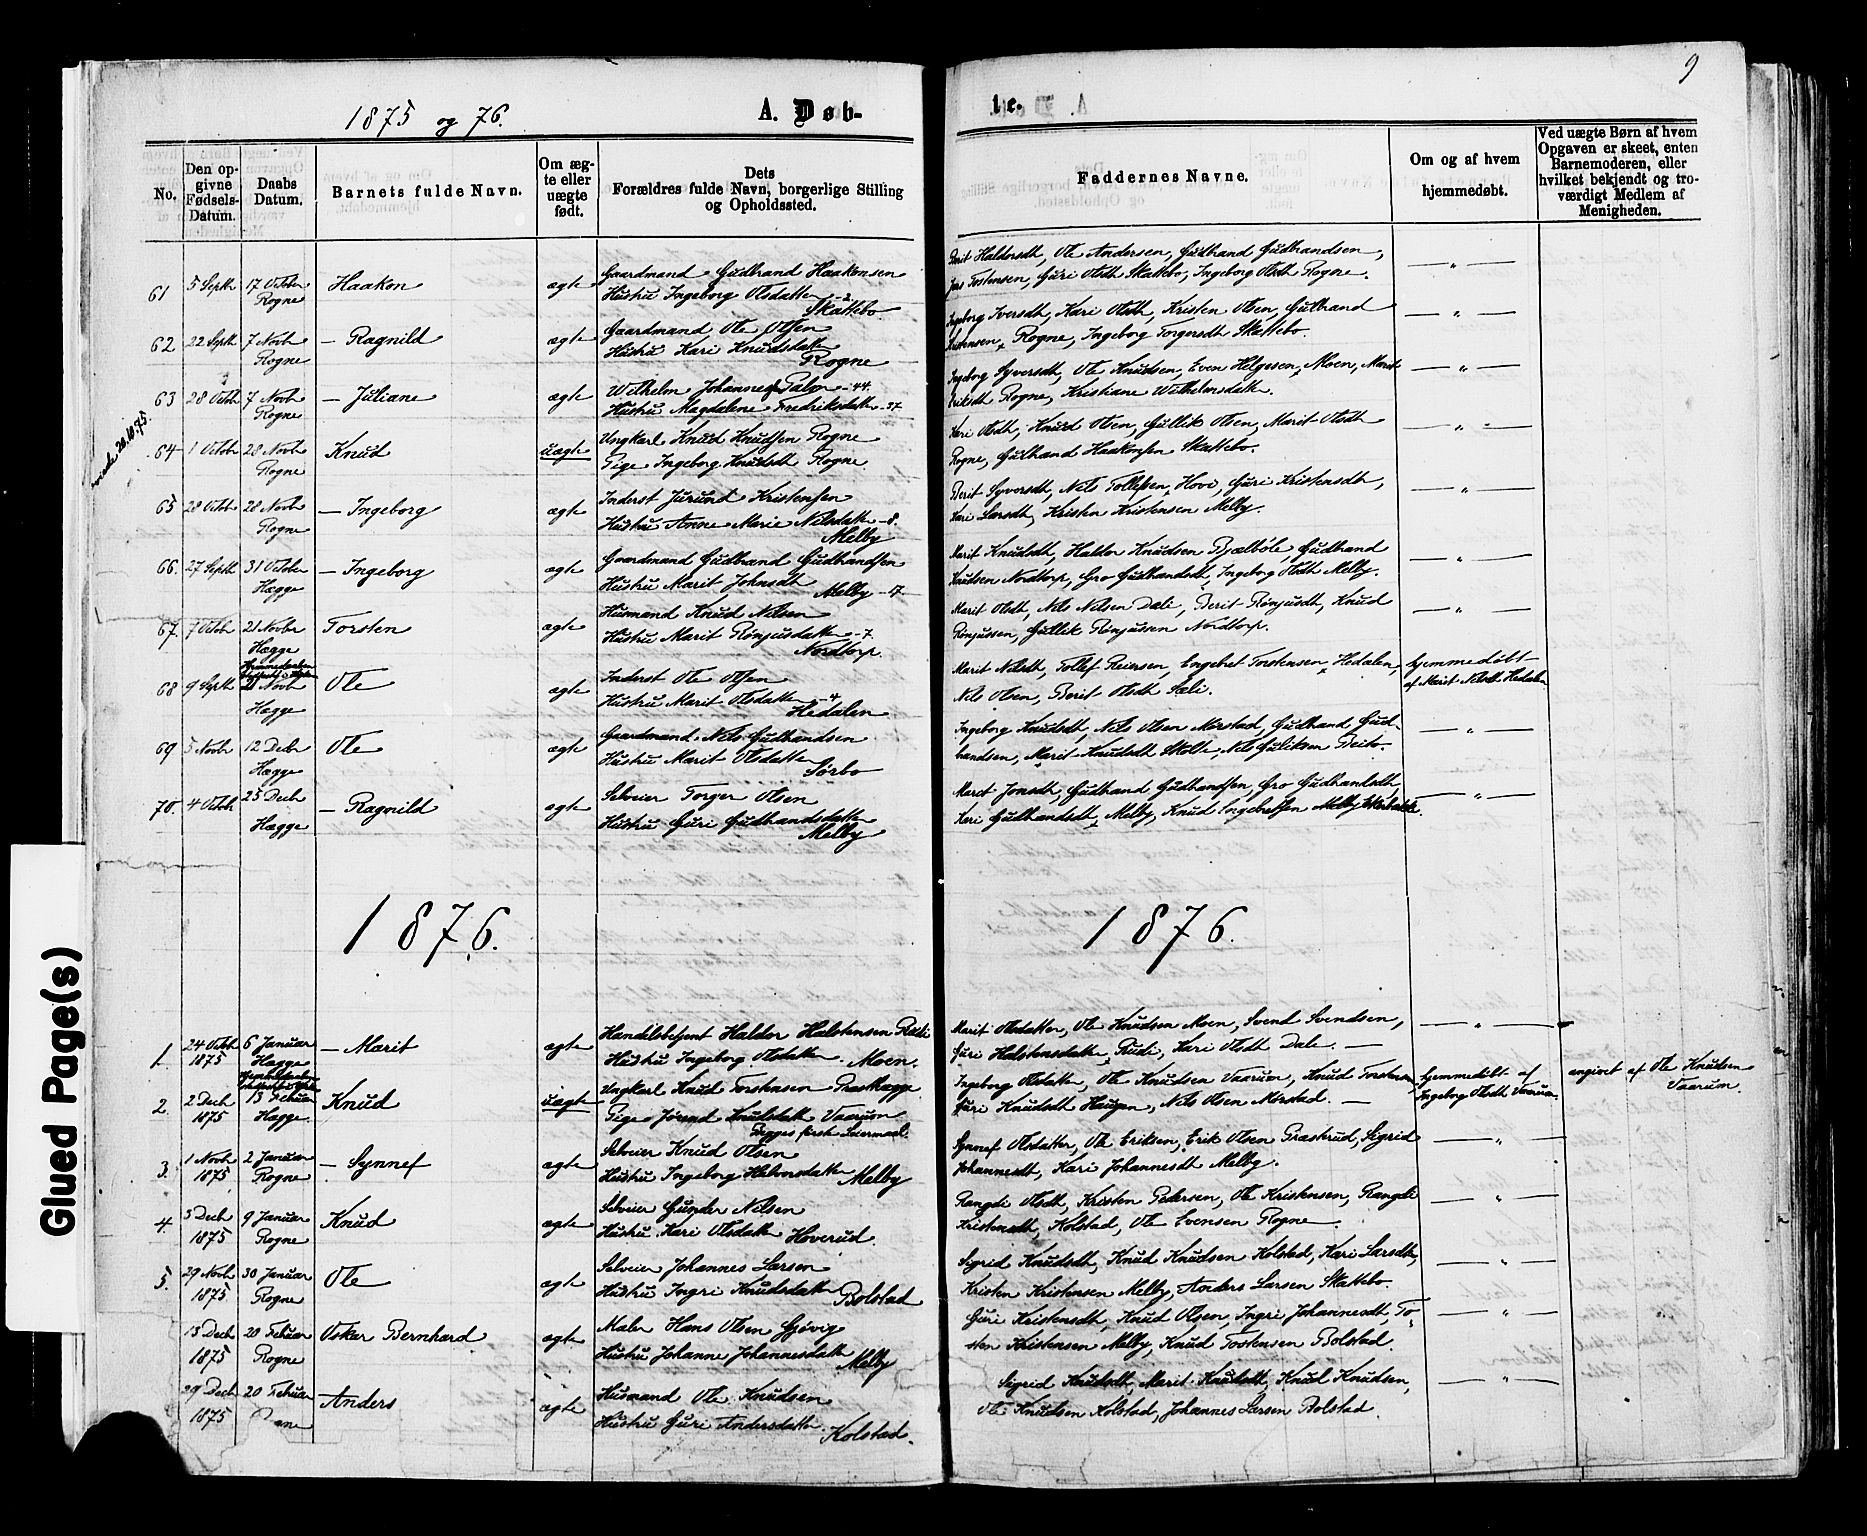 9
1875 og 76.
A. Døb-
1.c.
No.
Den op-
givne
Fødsels-
Datum.
Daabs
Datum.
Barnets fulde Navn.
Om æg-
te eller
uægte
født.
Dets
Forældres fulde Navn, borgerlige Stilling
og Opholdssted.
Faddernes Navne.
Om og af hvem
hjemmedøbt.
Ved uægte Børn af hvem
Opgaven er skeet, enten
Barnemoderen, eller
hvilket bekjendt og tro-
værdigt Medlem af
Menigheden.
61 5 Septb 17 Octobr Haakon ægte Gaardmand Gudbrand Haakonsen
Rogne Hustru Ingeborg Olsdatter
Skattebo
Berit Haldorsdt, Ole Andersen, Gudbrand Gudbrandsen,
Torstensen, Guri Olsdt Skattebo, Ingeborg Olsdt Rogne.
62 22 Septb 7 Novb – Ragnild ægte Gaardmand Ole Olsen
Rogne Hustru Kari Knudsdatter
Rogne
Ingeborg Iversdt, Kari Olsdt, Kristen Olsen, Gulbrand
Kristensen, Rogne, Ingeborg Torgersdt Skattebo.
63 28 Octob 7 Novb – Juliane ægte Wilhelm Johannes Palm – 44.
Rogne Hustru Magdalene Fredriksdatter – 37
Ingeborg Syversdt, Ole Knudsen, Even Helgesen, Moen, Marit
Eriksdt Rogne, Kristiane Wilhelmsdatter.
20.10.75.
64 1 Octobr 28 Novb Knud uægte Ungkarl Knud Knudsen Rogne
Rogne Pige Ingeborg Knudsdt Rogne
Kari Olsdt, Knud Olsen, Gullik Olsen, Marit Olsdt
Rogne, Gulbrand Haakonsen Skattebo.
65 28 Octobr 28 Novb – Ingeborg ægte Inderst Jørund Kristensen
Rogne Hustru Anne Marie Nilsdatter – 8.
Melby
Berit Syversdt, Nils Tollefsen, Hove, Guri Kristensdt,
Kari Larsdt, Kristen Kristensen Melby.
66. 27 Septb 31 Octobr – Ingeborg ægte Gaardmand Gudbrand Gudbrandsen
Hægge Hustru Marit Johnsdt
Melby – 17
Marit Knudsdt, Haldor Knudsen Bjelbøle, Gudbrand
Knudsen Nordtorp, Gro Gudbrandsdt, Ingeborg Olsdt Melby.
67. 7 Octobr 21 Novbr Torsten ægte Husmand Knud Nilsen
Hægge Hustru Marit Rønjusdatter – 7
Nordtorp.
Marit Olsdt, Nils Nilsen Dale, Berit Rønjusdt, Knud
Rønjussen, Gullik Rønjussen Nordtorp.
68 9 Septb 21 Novb Ole ægte Inderst Ole Olsen
Hægge Hustru Marit Olsdatter – 4
Hedalen
Marit Nilsdt, Tollef Reiersen, Engebret Torstensen, Hedalen,
Nils Olsen, Berit Olsdt Sæli.
hjemmedøbt
af Marit Nilsdt Hedalen
69 5 Novb 12 Decbr Ole ægte Gaardmand Nils Gudbrandsen
Hægge Hustru Marit Olsdatter
Sørbo
Ingeborg Knudsdt, Nils Olsen Mørstad, Gudbrand Gud-
brandsen, Marit Knudsdt Stølte, Nils Guliksen Beito.
70. 4 Octob 25 Decb – Ragnild ægte Selveier Torger Olsen
Hægge Hustru Guri Gudbrandsdatter
Melby
Maret Jonsdt, Gudbrand Gudbrandsen, Gro Gudbrandsdt,
Kari Gulbrandsdt, Melby, Knud Ingebretsen
1876.
1876.
1. 24 Octob 6 Januar – Marit ægte Handelsbetjent Haldor Halstensen Rudi
1875 Hægge Hustru Ingeborg Olsdatter Moen.
Marit Olsdatter, Ole Knudsen Moen, Svend Svendsen,
Guri Halstensdatter, Rudi, Kari Olsdt Dale.
2. 2 Decb 13 Februar Knud uægte Ungkarl Knud Torstensen Præsthægge
1875 Hægge Pige Jørend Knudsdatter Vaarum
Begges første Leiermaal.
Ingeborg Olsdatter, Ole Knudsen Vaarum, Knud Torstensen
Guri Knudsdt Haugen, Nils Olsen Mørstad.
hjemmedøbt af
Ingeborg Olsdt Vaarum.
angivet af Ole Knudsen
Vaarum.
3. 1 Novb 2 Januar – Synnef ægte Selveier Knud Olsen
1875 Rogne Hustru Ingeborg Halvorsdatter Melby
Synnef Olsdatter, Ole Eriksen, Erik Olsen Præstrud, Sigrid
Johannesdt, Kari Johannesdt Melby.
4. 3 Decb 9 Januar Knud ægte Selveier Gunder Nilsen
1875 Rogne Hustru Kari Olsdatter Hoverud.
Rangdi Olsdt, Kristen Pedersen, Ole Kristensen, Rangdi
Kristensdt, Kolstad, Ole Evensen Rogne.
5. 29 Novb 30 Januar Ole ægte Selveier Johannes Larsen
1875 Rogne Hustru Ingri Knudsdatter Bolstad
Sigrid Knudsdt, Knud Knudsen Kolstad, Kari Larsdt,
Kristen Kristensen Melby, Anders Larsen Skattebo.
13 Decb 20 Februar Oskar Bernhard ægte Maler Hans Olsen Gjøvig
1875 Rogne Hustru Johanne Johannesdatter Melby
Guri Kristensdt, Knud Olsen, Ingri Johannesdt, To-
sten Kristensen Melby, Knud Torstensen Bolstad.
29 Decb 20 Februar Anders ægte Husmand Ole Knudsen
1875 Hustru Guri Andersdatter Kolstad.
Sigrid Knudsdt, Marit Knudsdt, Knud Knudsen,
Ole Knudsen Kolstad, Johannes Larsen Bolstad.
Glued Page(s)